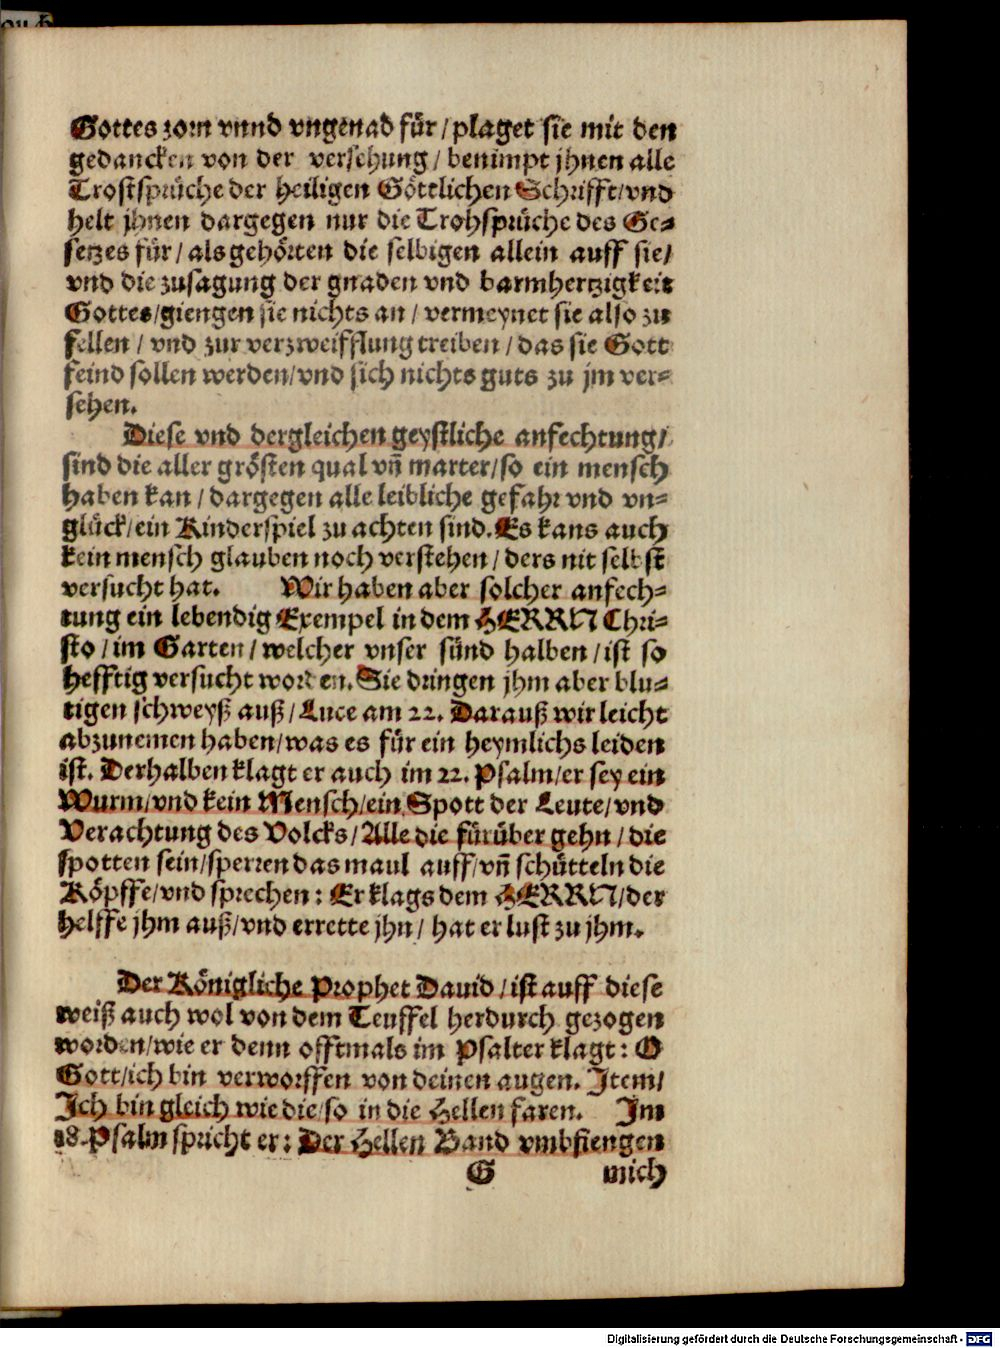 Gottes zorn vnnd vngenad für / plaget sie mit den
gedancken von der versehung / benimpt jhnen alle
Trostsprüche der heiligen Göttlichen Schrifft/vnd
helt jhnen dargegen nur die Trohsprüche des Ge⸗
setzes für / als gehörten die selbigen allein auff sie/
vnd die zusagung der gnaden vnd barmhertzigkeit
Gottes/giengen sie nichts an / vermeynet sie also zu
fellen / vnd zur verzweifflung treiben / das sie Gott
feind sollen werden/vnd sich nichts guts zu jm ver⸗
sehen.
Diese vnd dergleichen geystliche anfechtung/
sind die aller grösten qual vñ marter/so ein mensch
haben kan / dargegen alle leibliche gefahr vnd vn⸗
glück/ein Kinderspiel zu achten sind. Es kans auch
kein mensch glauben noch verstehen / ders nit selbst
versucht hat. Wir haben aber solcher anfech⸗
tung ein lebendig Exempel in dem HERRN Chri⸗
sto / im Garten / welcher vnser sünd halben / ist so
hefftig versucht worden. Sie dringen jhm aber blu⸗
tigen schweyß auß / Luce am 22. Darauß wir leicht
abzunemen haben/was es für ein heymlichs leiden
ist. Derhalben klagt er auch im 22. Psalm/er sey ein
Wurm/vnd kein Mensch/ein Spott der Leute/vnd
Verachtung des Volcks / Alle die fürüber gehn / die
spotten sein/sperren das maul auff/vñ schütteln die
Köpffe/vnd sprechen : Er klags dem HERRN/der
helffe jhm auß/vnd errette jhn / hat er lust zu jhm.
Der Königliche Prophet Dauid / ist auff diese
weiß auch wol von dem Teuffel herdurch gezogen
worden/wie er denn offtmals im Psalter klagt : O
Gott/ich bin verworffen von deinen augen. Item/
Ich bin gleich wie die/so in die Hellen faren. Im
18. Psalm spricht er : Der Hellen Band vmbfiengen
G mich
Digitalisierung gefördert durch die Deutsche Forschungsgemeinschaft - DFG